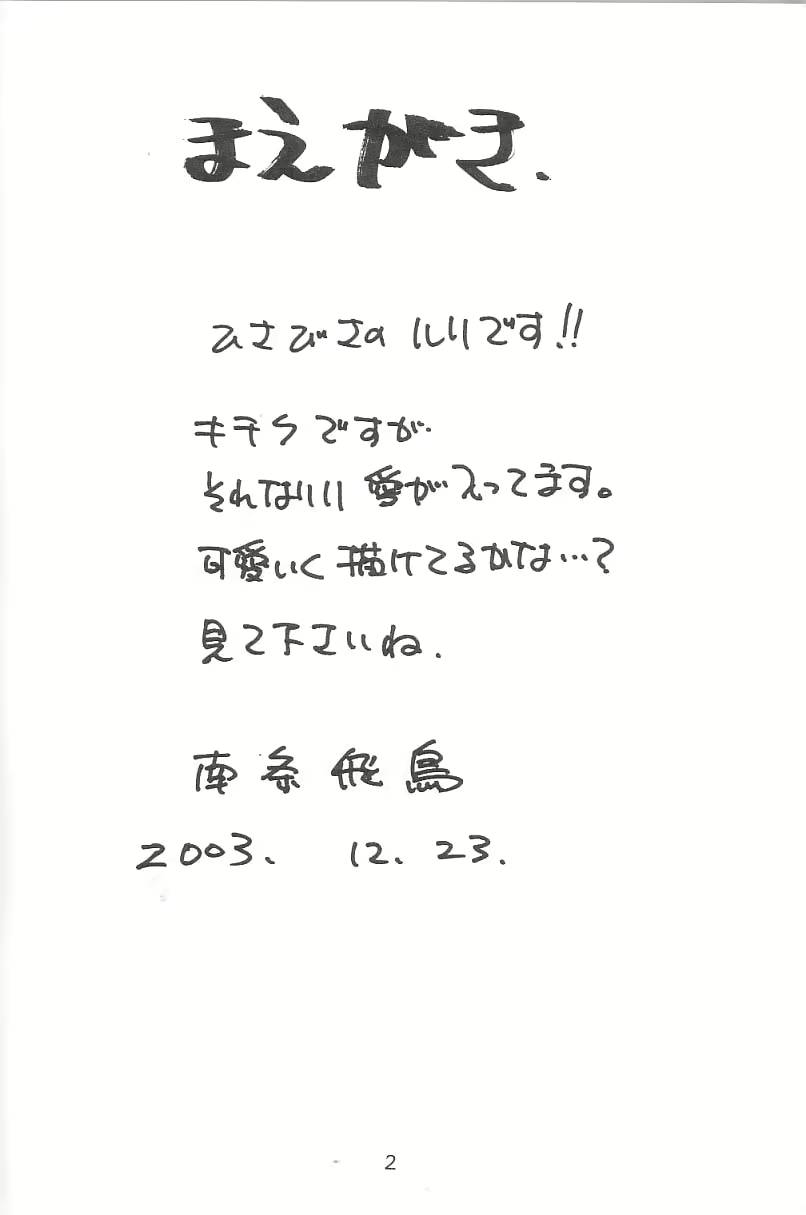 まえがき.
ひさびさの です!!
キチク ですが.
それなりに 愛が入ってます。
可愛いく 描けてるかな…?
見て下さいね.
南条飛鳥
2003. 12. 23.
2